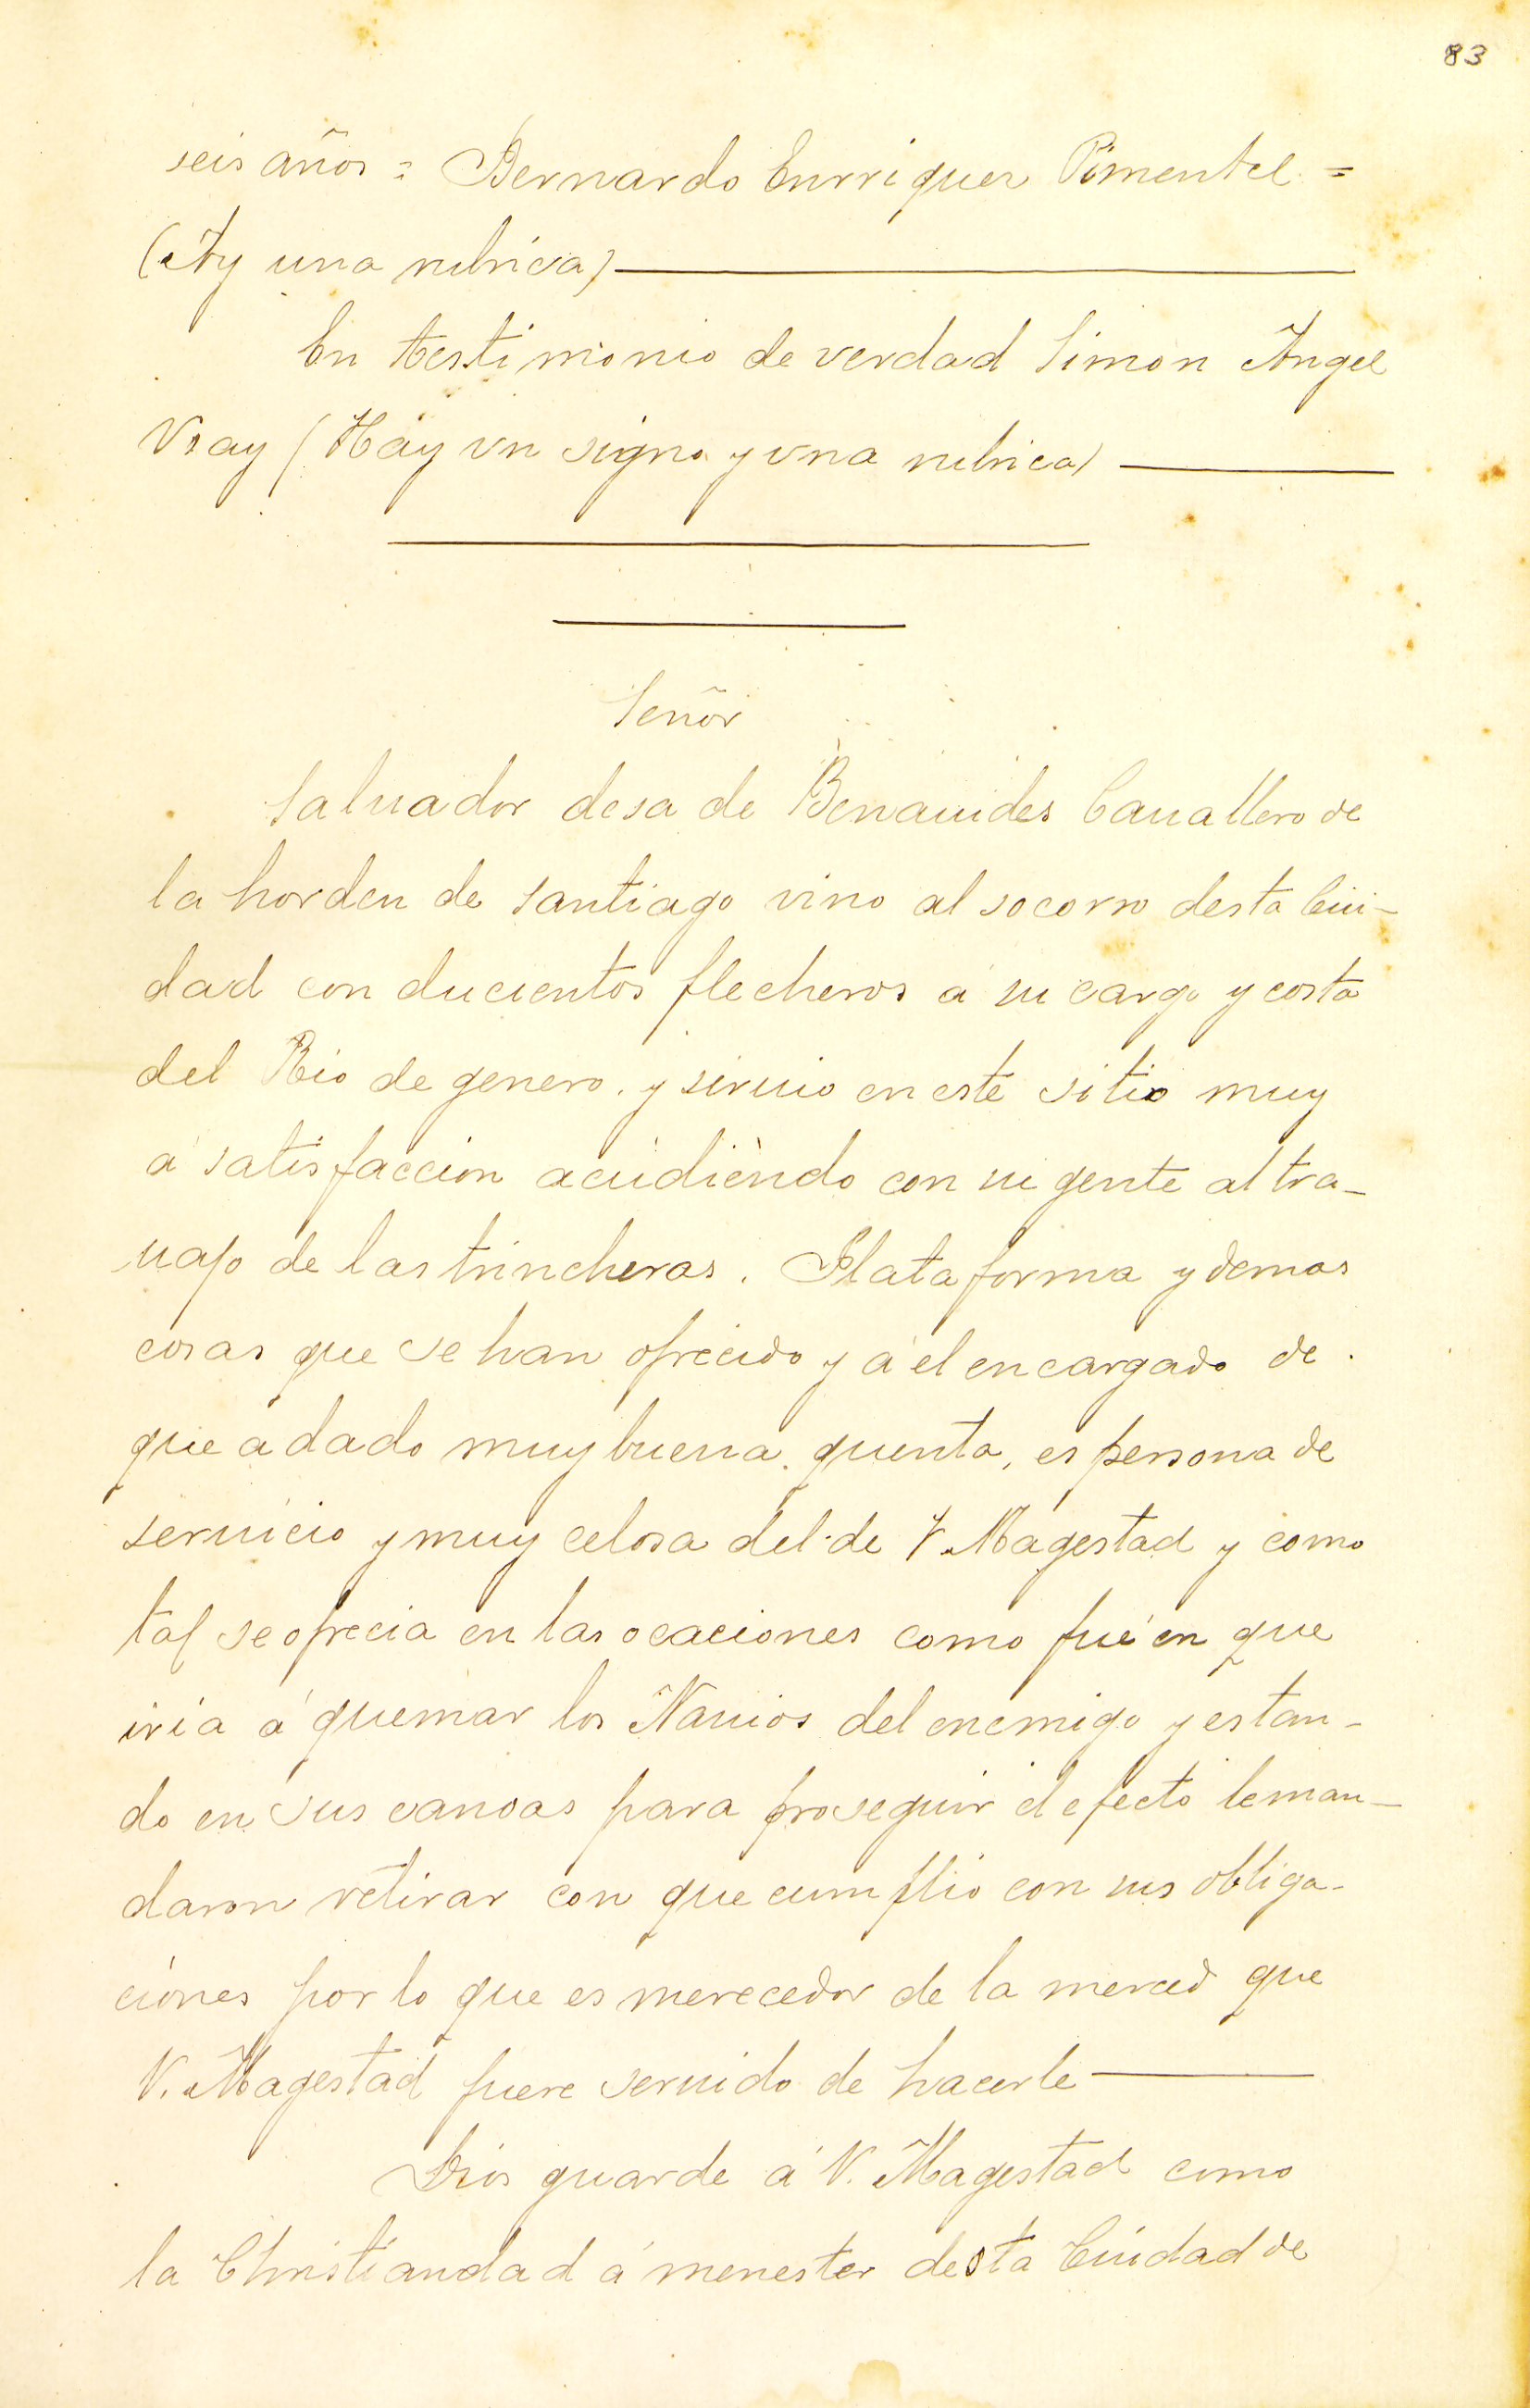 83
seis años = Bernardo Enrriquez Pimentel =
(Ay una rubrica)
En testimonio de verdad Simon Angel
Vray (Hay vn signo y vna rubrica)
Señor
Saluador desa de Benauides Cauallero de
la horden de santiago vino al socorro desta Ciu-
dad con ducientos flecheros á su cargo y costa
del Rio de genero. y siruio en este sitio muy
á satisfaccion acudiendo con su gente al tra-
uajo de las trincheras. Plataforma y demas
cosas que se han ofrecido y á el encargado de
que a dado muy buena quenta, es persona de
seruicio y muy celosa del de V. Magestad y como
tal se ofrecia en las ocaciones como fué en que
iria á quemar los Nauios del enemigo y estan-
do en sus canoas para proseguir el efecto le man-
daron retirar con que cumplio con sus obliga-
ciones por lo que es merecedor de la merced que
V. Magestad fuere seruido de hacerle
Dios guarde á V. Magestad como
la Christiandad á menester desta Ciudad de